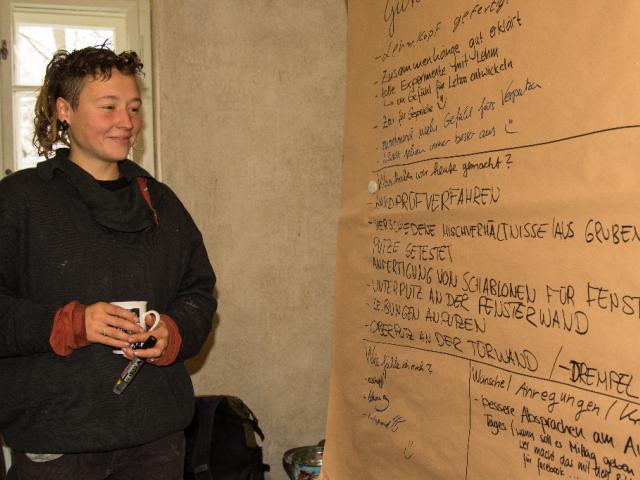 - Lehmkopf gefertigt
- Zusammenhänge gut erklärt
- tolle Experimente mit Lehm
↳ um Gefühl für Lehm entwickeln
- Zeit für Gespräche
- zunehmend mehr Gefühl fürs Verputzen
immer besser aus
Was haben wir heute gemacht?
- HANDPRÜFVERFAHREN
- VERSCHIEDENE MISCHVERHÄLTNISSE/AUS GRUBEN
PUTZE GETESTET
ANFERTIGUNG VON SCHABLONEN FÜR FENST
- UNTERPUTZ AN DER FENSTERWAND
- LEIBUNGEN ANPUTZEN
- OBERPUTZ AN DER TORWAND / - DREMPEL
Was fehlte noch?
Wünsche/Anregungen/
- bessere Absprachen am
Tages (wann soll es Mittag geben
wer macht das mit
für facebook...